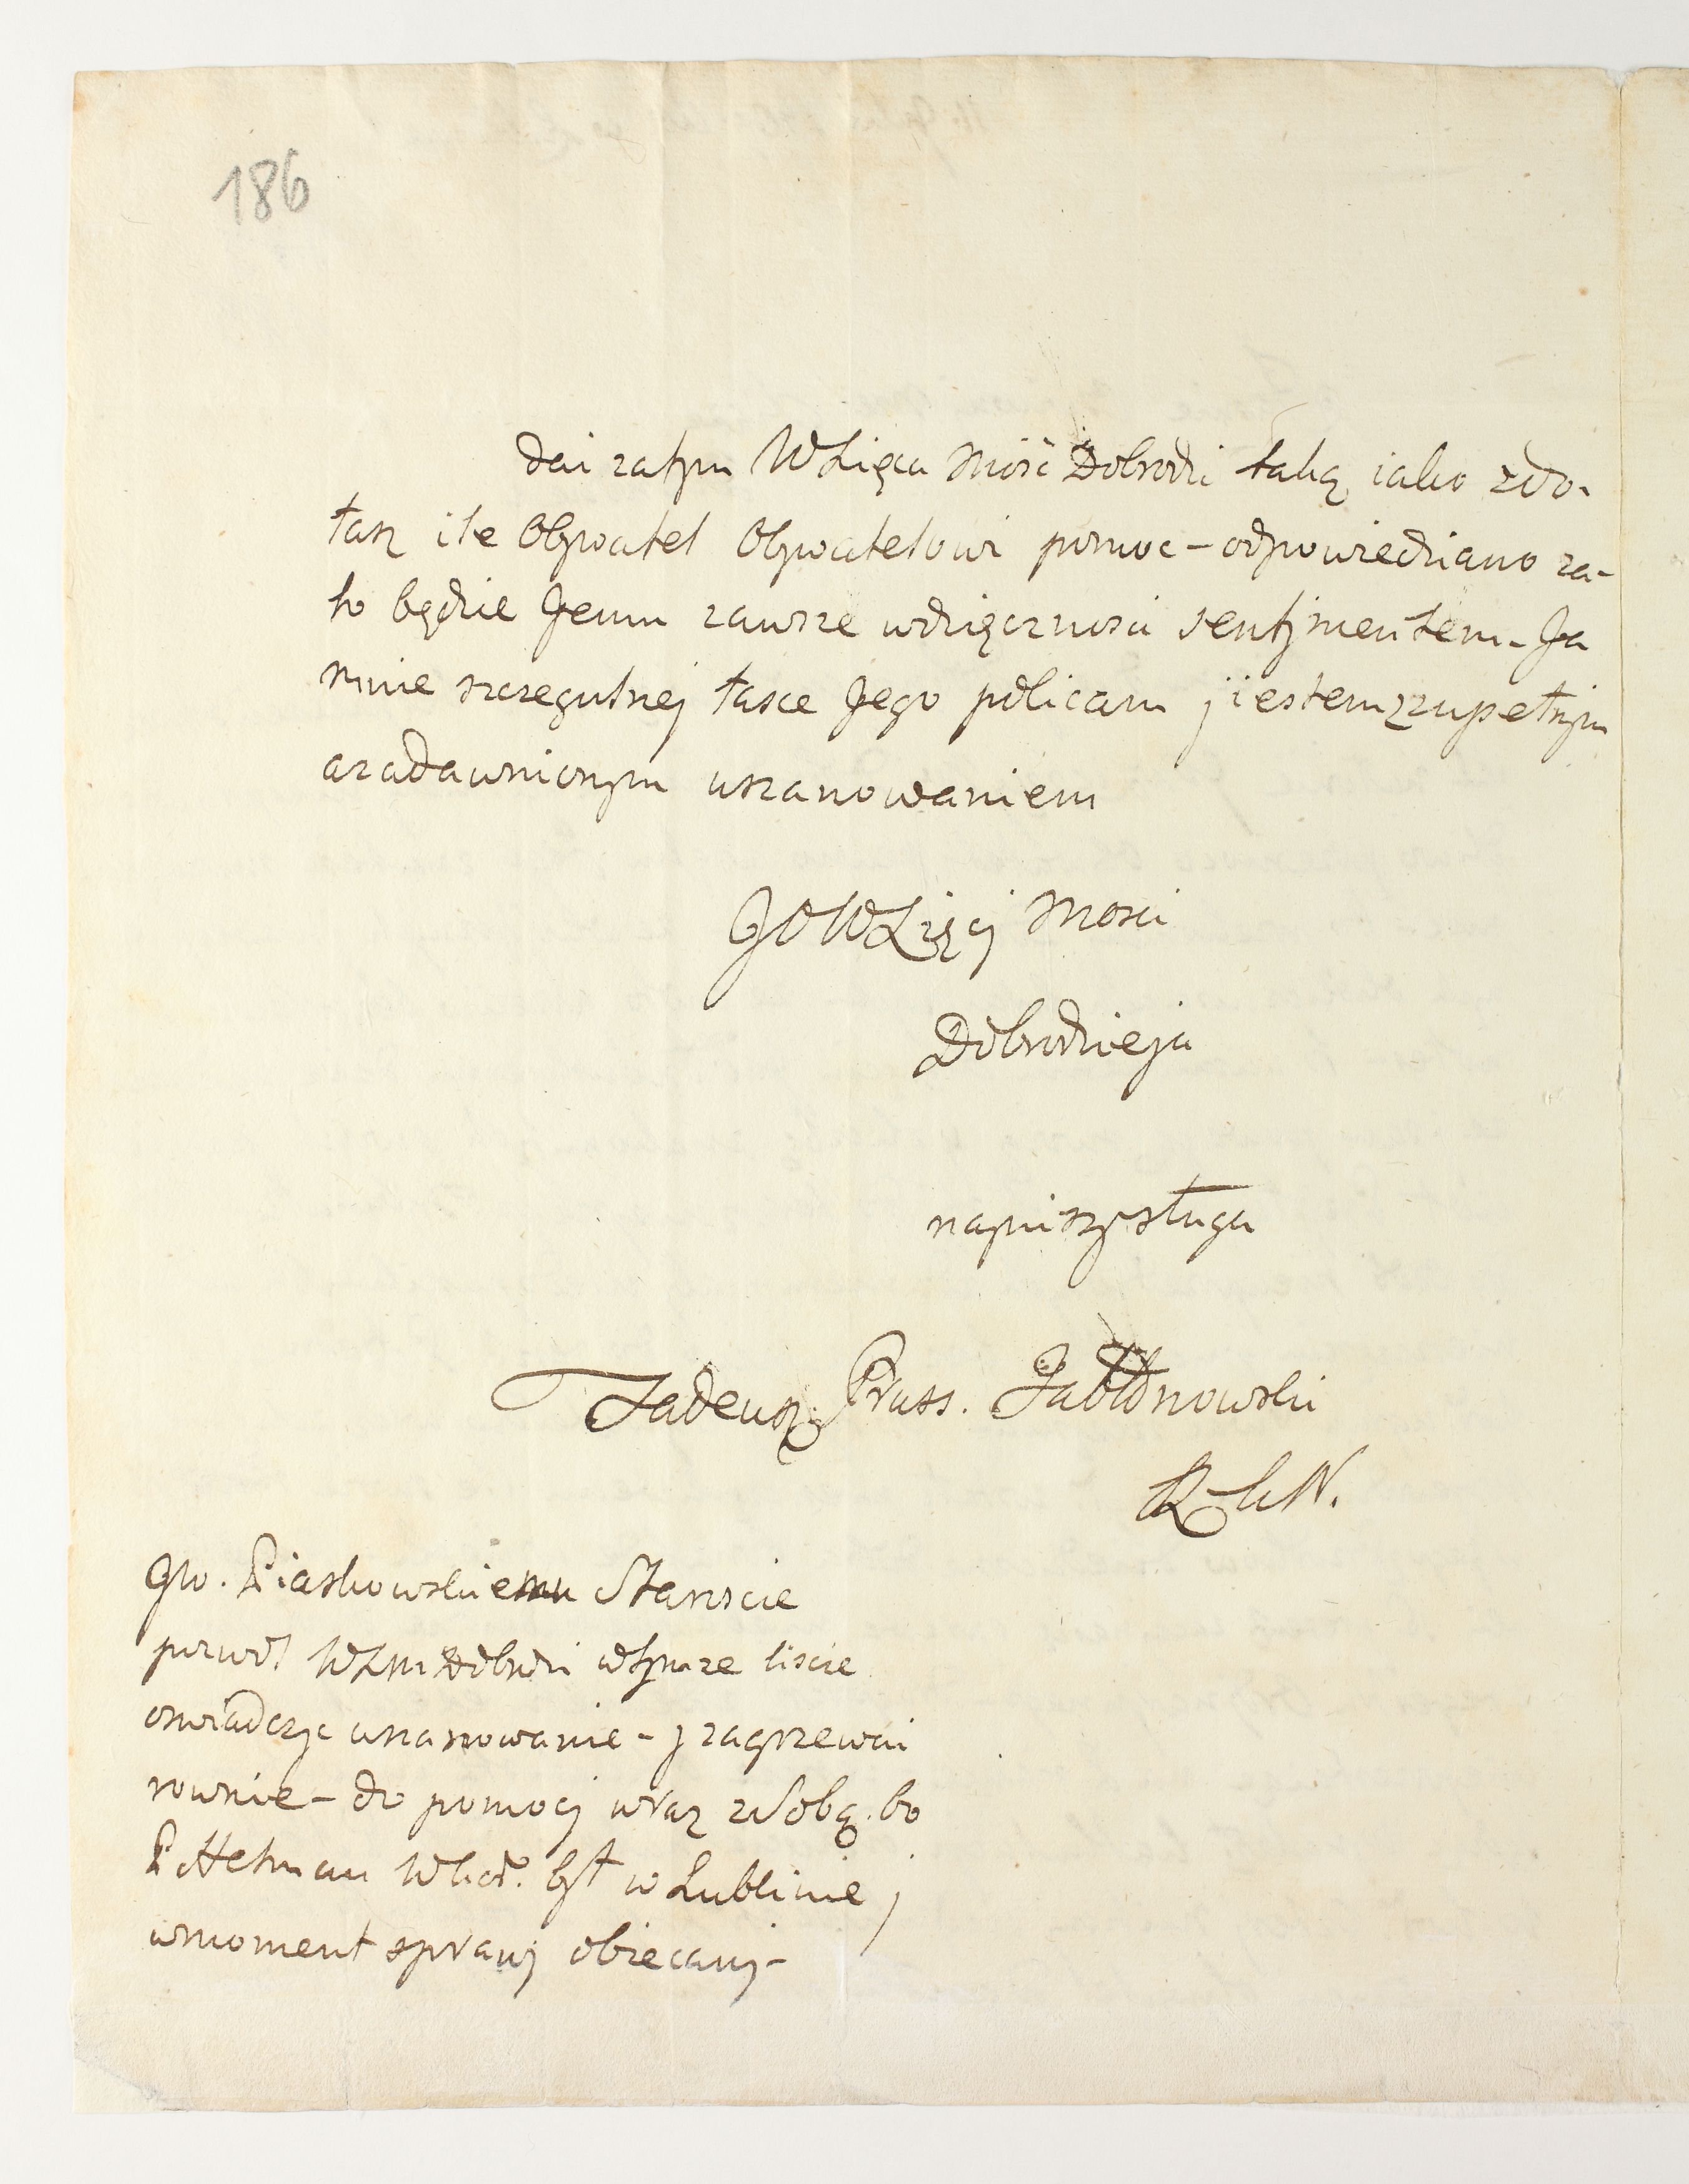 186
Dai zatym WXięca Mość Dobrodzi taką iako zdo-
łasz ile Obywatel Obywatelowi pomoc - odpowiedziano za-
to będzie Jemu zawsze wdzięcznosci sentymentem - Ja
mnie szczegulnej łasce Jego policam j iestem z zupełnym
a zadawnionym uszanowaniem
JOWXięcj Mosci
Dobrodzieja
napniszy sługa
Tadeusz Pruss. Jabłonowski
JW. Piaskowskiemu Staroscie
pozwól WXM Dobrodzi w tymze liscie
oswiadczyc uszanowanie - j zagrzewai
rownie - do pomocy wraz z Sobą. bo
P Hetman był w Lublinie j
w moment sprawy obiecany -